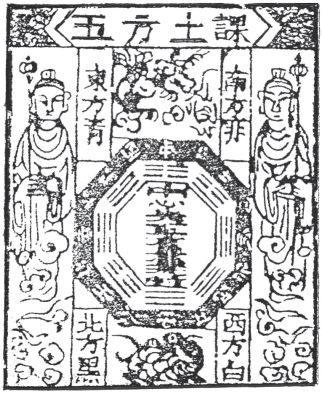 五方土課
東方青
南方排
北方黑
西方白